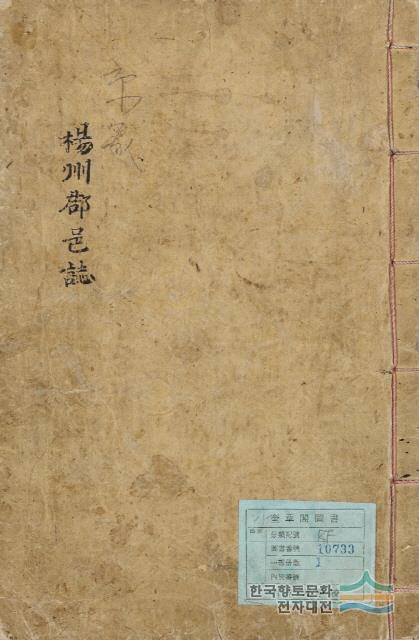 楊州郡邑誌
奎章閣圖書
分類記號
圖書番號 10733
一部冊數 1
한국향토문화
전자대전